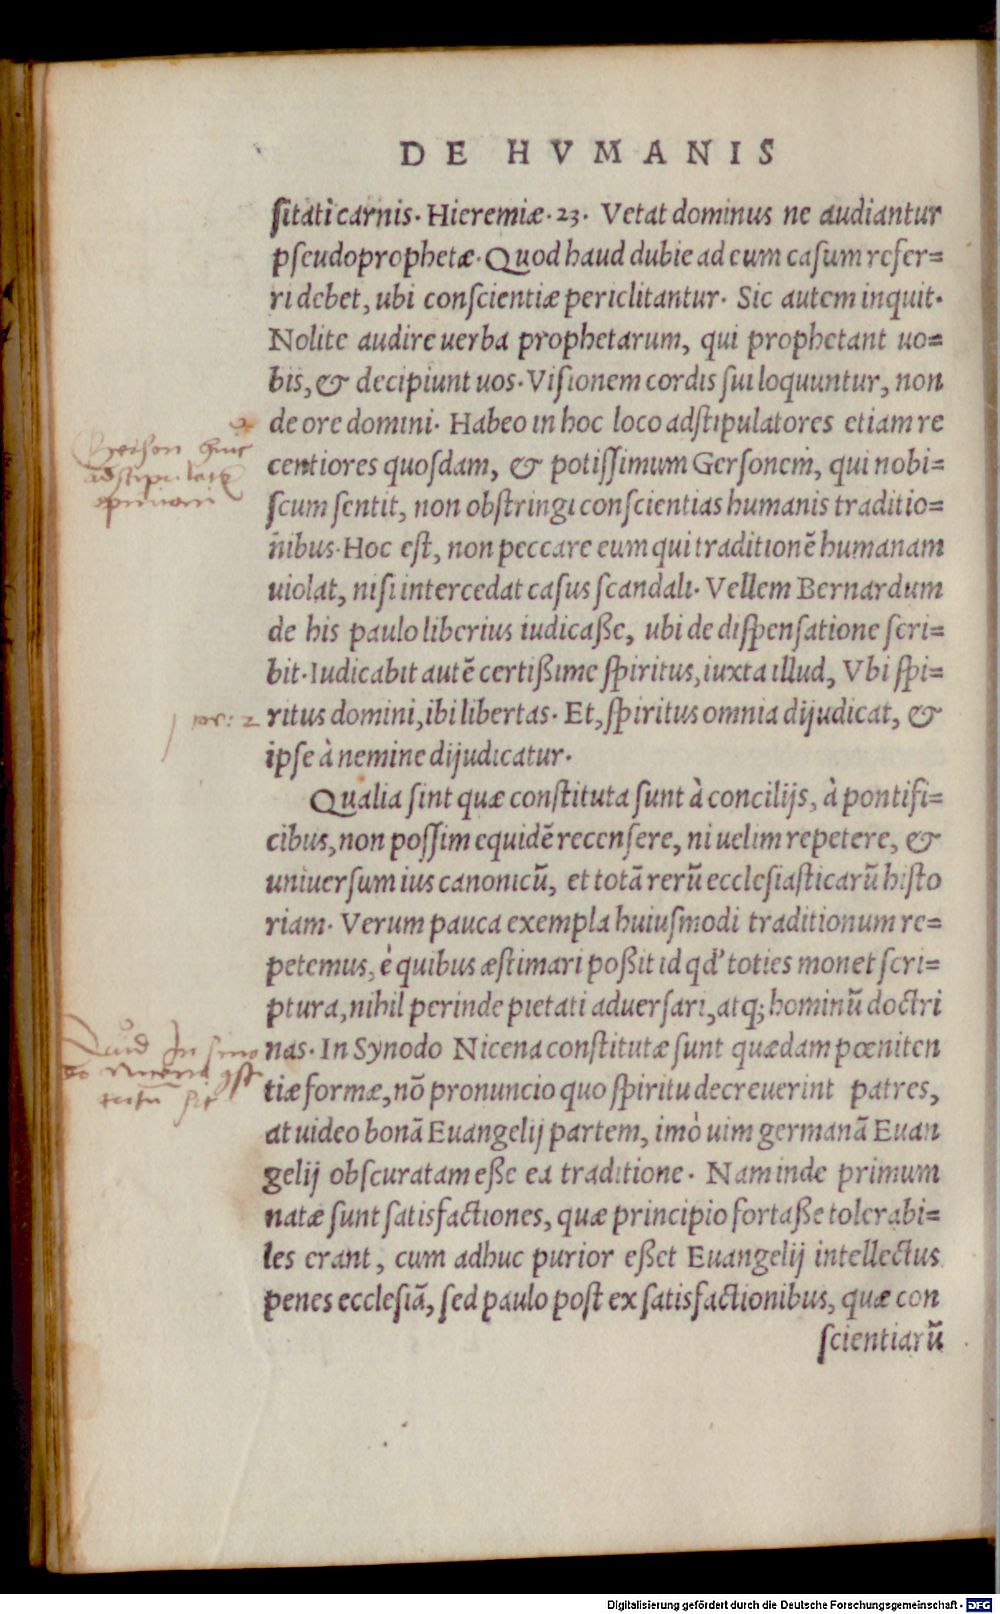 DE HVMANIS
ſitati carnis. Hieremiæ. 23. Vetat dominus ne audiantur
pſeudoprophetæ. Quod haud dubie ad eum caſum refer=
ri debet, ubi conſcientiæ periclitantur. Sic autem inquit.
Nolite audire uerba prophetarum, qui prophetant uo=
bis, & decipiunt uos. Viſionem cordis ſui loquuntur, non
de ore domini. Habeo in hoc loco adſtipulatores etiam re
centiores quoſdam, & potiſſimum Gerſonem, qui nobi=
ſcum ſentit, non obſtringi conſcientias humanis traditio=
nibus. Hoc eſt, non peccare eum qui traditionẽ humanam
uiolat, niſi intercedat caſus ſcandali. Vellem Bernardum
de his paulo liberius iudicaße, ubi de diſpenſatione ſcri=
bit. Iudicabit autẽ certißime ſpiritus, iuxta illud, Vbi ſpi=
ritus domini, ibi libertas. Et, ſpiritus omnia dijudicat, &
ipſe à nemine dijudicatur.
Qualia ſint quæ conſtituta ſunt à concilijs, à pontifi=
cibus, non poſſim equidẽ recenſere, ni uelim repetere, &
uniuerſum ius canonicũ, et totã rerũ eccleſiaſticarũ hiſto
riam. Verum pauca exempla huiuſmodi traditionum re=
petemus, è quibus æſtimari poßit id qd' toties monet ſcri=
ptura, nihil perinde pietati aduerſari, atq; hominũ doctri
nas. In Synodo Nicena conſtitutæ ſunt quædam pœniten
tiæ formæ, nõ pronuncio quo ſpiritu decreuerint patres,
at uideo bonã Euangelij partem, imò uim germanã Euan
gelij obſcuratam eße ea traditione. Nam inde primum
natæ ſunt ſatisfactiones, quæ principio fortaße tolerabi=
les erant, cum adhuc purior eßet Euangelij intellectus
penes eccleſiã, ſed paulo poſt ex ſatisfactionibus, quæ con
ſcientiarũ
Gerſon huic
1 Cor: 2
Quid In ſino
Digitalisierung gefördert durch die Deutsche Forschungsgemeinschaft - DFG